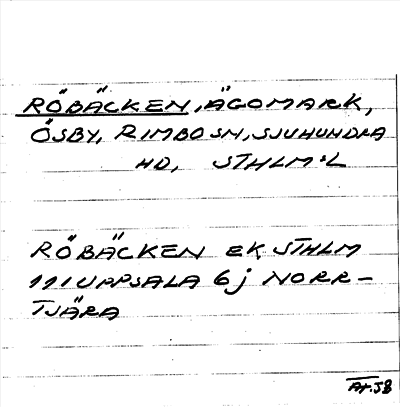 RÖBÄCKEN, ÄGOMARK,
ÖSBY, RIMBO SN, SJUHUNDRA
HD, STHLM:L
RÖBÄCKEN EK STHLM
111 UPPSALA 6j NORR-
TJÄRA
AT.58